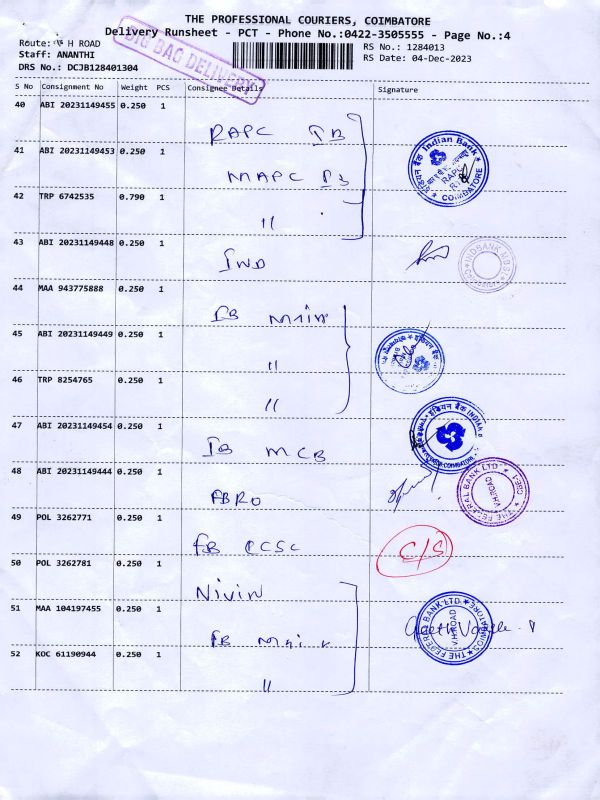 THE PROFESSIONAL COURIERS, COIMBATORE
Delivery Runsheet - PCT - Phone No.:0422-3505555 - Page No.:4
Route: H ROAD
RS No.: 1284013
Staff: ANANTHI
RS Date: 04-Dec-2023
DRS No.: DCJB128401304
BIG BAG DELIVERY
S No Consignment No Weight PCS Consignee Details Signature
40 ABI 20231149455 0.250 1
RAPC IB
41 ABI 20231149453 0.250 1
MAPC IB
Indian Bank
RAPC
COIMBATORE
42 TRP 6742535 0.790 1
"
43 ABI 20231149448 0.250 1
IND
44 MAA 943775888 0.250 1
IB Main
45 ABI 20231149449 0.250 1
"
46 TRP 8254765 0.250 1
"
47 ABI 20231149454 0.250 1
IB MCB
इंडियन बैंक
48 ABI 20231149444 0.250 1
FBRO
THE FEDERAL BANK LTD.
V.H.ROAD
49 POL 3262771 0.250 1
FB CCSC
C/S
50 POL 3262781 0.250 1
Nivin
51 MAA 104197455 0.250 1
FB Main
THE FEDERAL BANK LTD.
V.H.ROAD
COIMBATORE
52 KOC 61190944 0.250 1
"